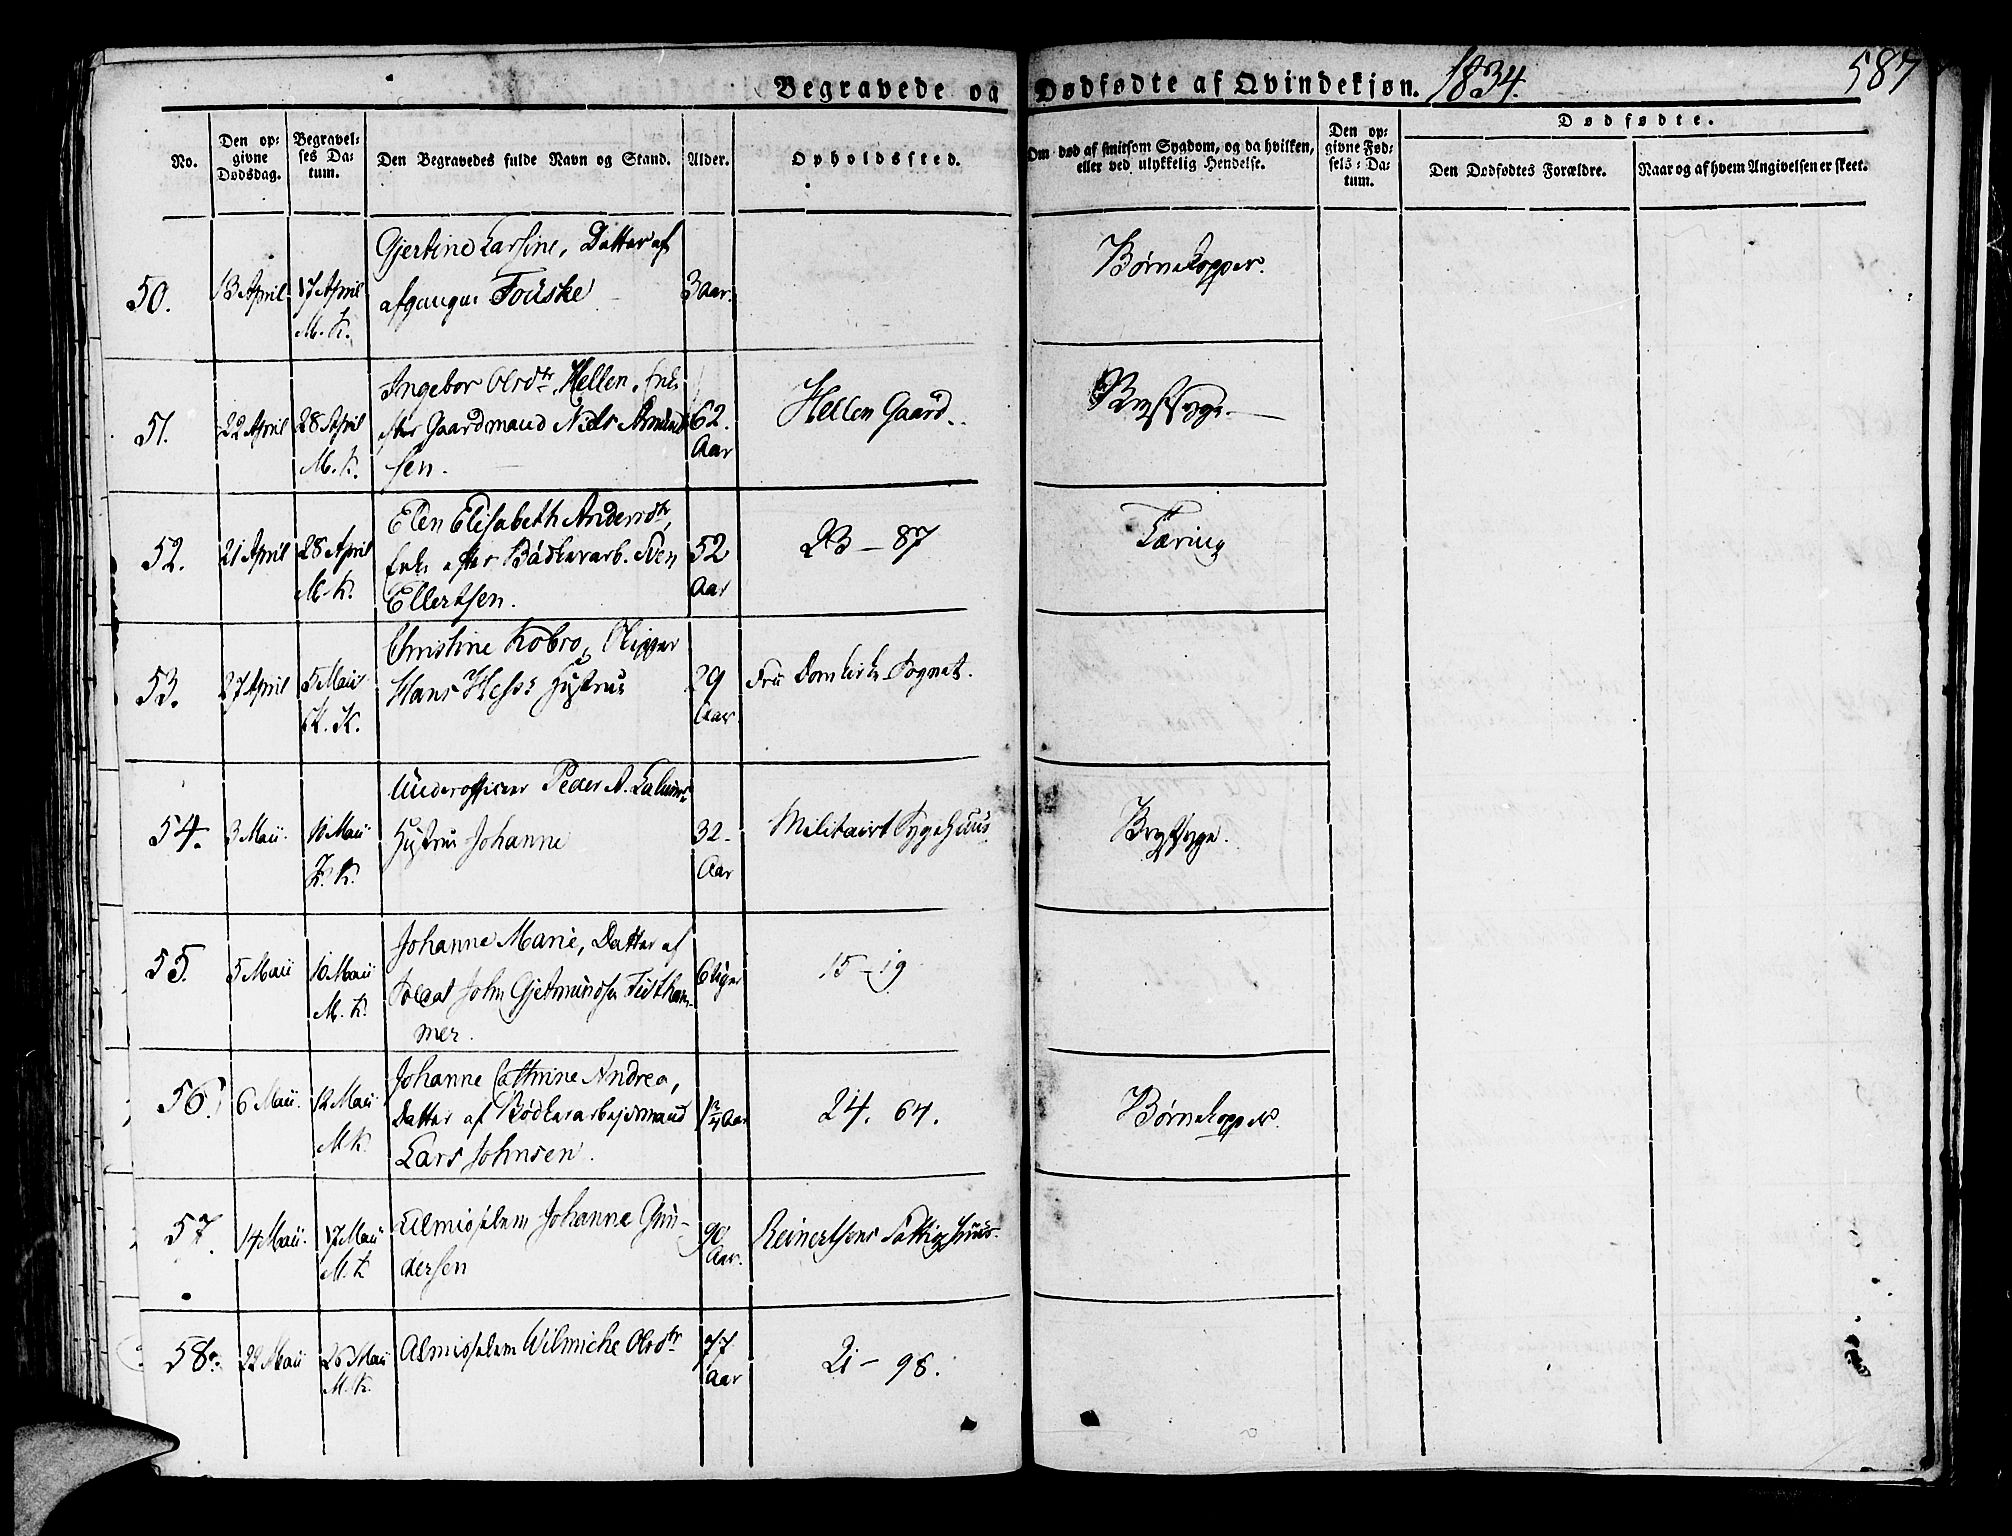 Begravede og Dødfødte af Qvindekjøn. 1834.
587
No.
Den opgivne Dødsdag.
Begravelses Datum.
Den Begravedes fulde Navn og Stand.
Alder.
Opholdssted.
Om død af smitsom Sygdom, og da hvilken, eller ved ulykkelig Hendelse.
Den opgivne Fødsels-Datum.
Dødfødte.
Den Dødfødtes Forældre.
Naar og af hvem Angivelsen er skeet.
50. 13 April 17 April M. K.
Gjertine Larsine, Datter af
afgangne Foüske
3 Aar.
Børnekopper.
51. 22 April 28 April M. K.
Ingebor Olsdtr Hellen, Enke
efter Gaardmand Niels
sen.
62. Aar
Hellen Gaard.
Brystsyge.
52. 21 April 28 April M. K.
Elen Elisabeth Andersdtr,
Enke efter Bødkerarb. Sven
Ellertsen.
52 Aar
23 - 87
Tæring
53. 27 April 5 Maii K. K.
Christine Kobro, Skipper
Hans Hess's Hustrue
29 Aar
Fra Domkirke Sognet.
54. 3 Maii. 10 Maii K.
Underofficeer Peder A.
Hustrue Johanne
32. Aar
Militairt Sygehuus
Brystsyge.
55. 5 Maii 10 Maii M. K.
Johanne Marie, Datter af
Soldat John Gjetmundsen Tidtham-
mer.
6 Uger
15 - 19
56. 6 Maii. 12 Maii M K.
Johanne Cathrine Andrea,
Datter af Bødkerarbejdsmand
Lars Johnsen.
Aar
24. 64.
Børnekopper.
57. 14 Maii. 17 Maii M. K
Almisselem Johanne Gun-
dersen
90 Aar.
Reinertsens Fattighuus.
58. 22 Maii 26 Maii M. K.
Almisselem Wilmiche Olsdtr
77 Aar
21 - 98.